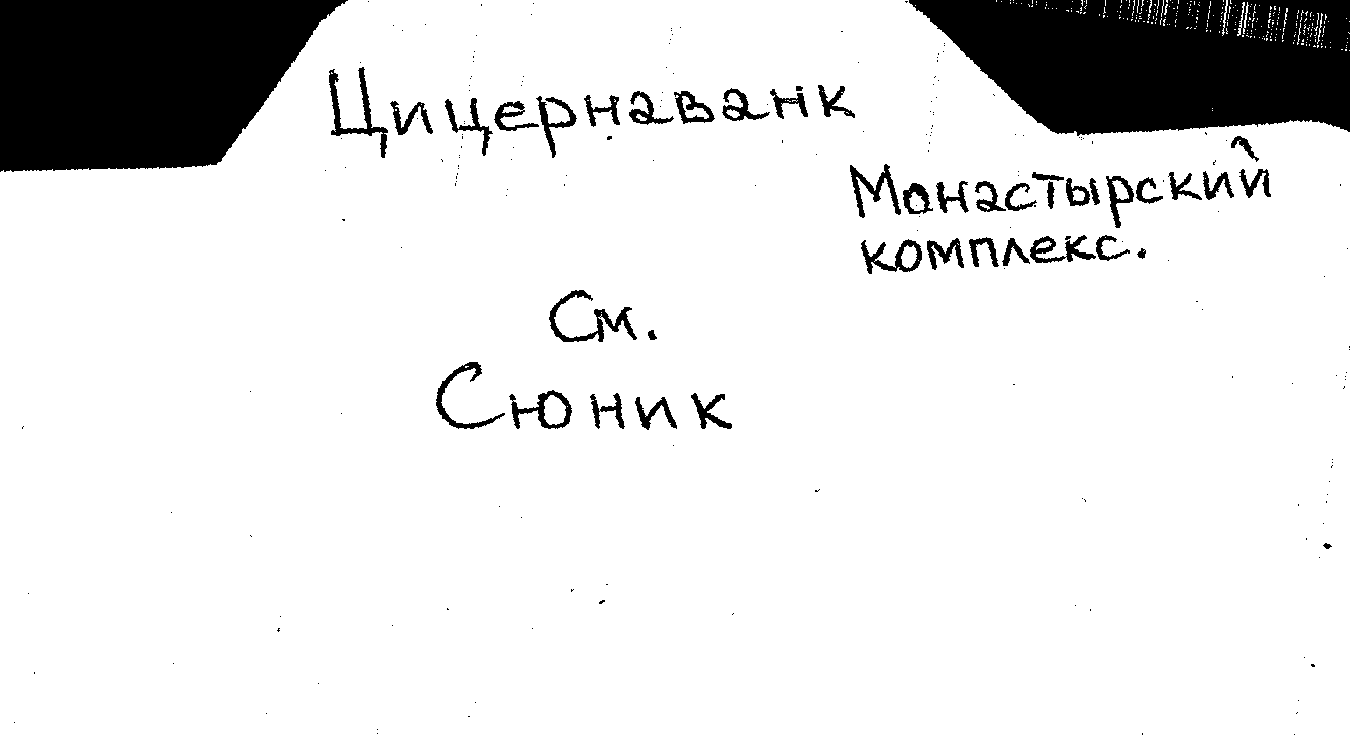 Цицернаванк
Монастырский
комплекс.
См.
Сюник